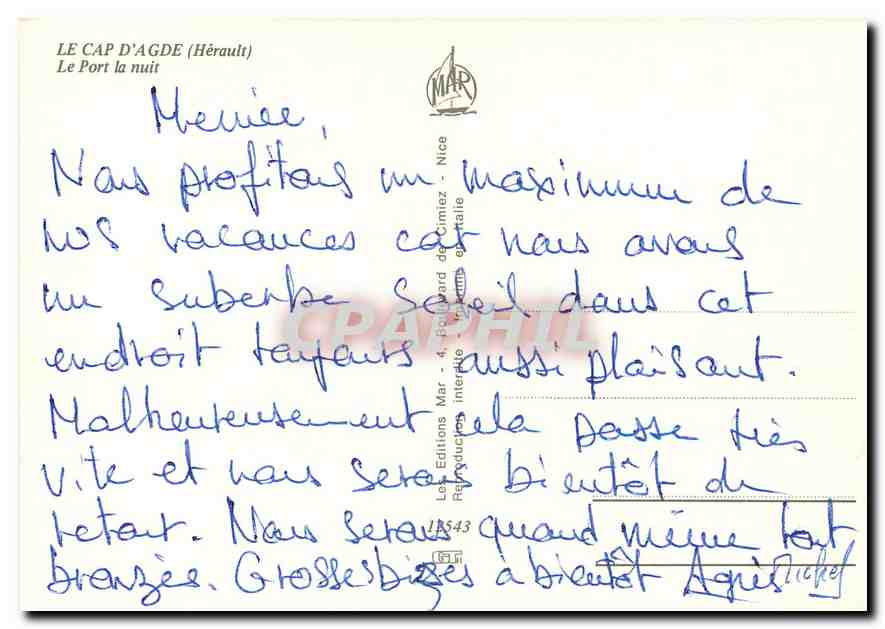 LE CAP D'AGDE (Hérault)
Le Port la nuit
MAR
Memée,
Nous profitons un maximum de
nos vacances car nous avons
un suberbe soleil dans cet
endroit toujours aussi plaisant.
Malheureusement cela passe très
vite et nous serons bientôt de
retour. Nous serons quand même tout
bronzés. Grosses bises à bientôt Agnès Michel
Les Editions Mar - 4, Boulevard de Cimiez - Nice
Reproduction interdite - Imprimé en Italie
CPAPHIL
13543